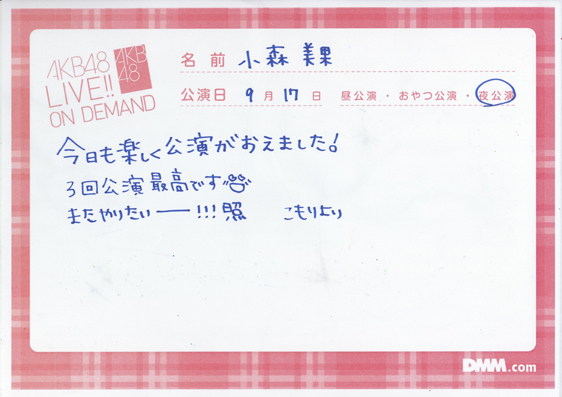 AKB48
LIVE!!
ON DEMAND
AKB
48
名前 小森美果
公演日 9月17日 昼公演・おやつ公演・夜公演
今日も楽しく公演がおえました!
3回公演最高です
またやりたいー!!!照 こもりより
DMM.com